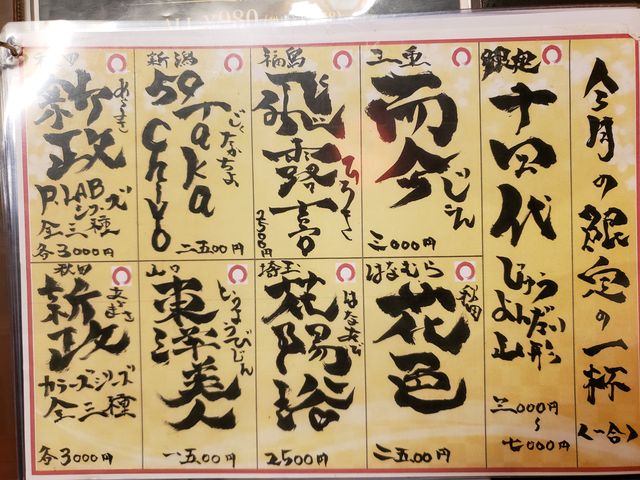 ALL ¥980
今月の限定の一杯
<一合>
十四代
じゅうよんだい
山形
三000円
〜
七000円
三重
而今
じこん
三000円
福島
飛露喜
ひろき
2500円
新潟
59Takachiyo
ごくたかちよ
二五00円
秋田
新政
あらまさ
P.LAB
シリーズ
全三種
各3000円
はなむら
秋田
花邑
二五00円
埼玉
花陽浴
はなあび
2500円
山口
東洋美人
とうようびじん
一五00円
秋田
新政
あらまさ
カラーズシリーズ
全三種
各3000円